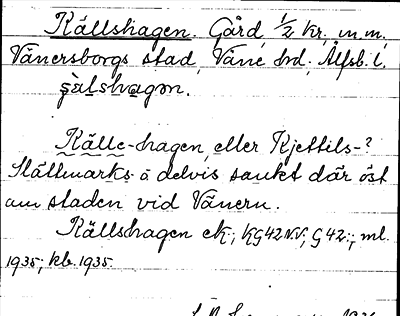 Källshagen. Gård, 1/2 kr. m.m.,
Vänersborgs stad, Väne hd. Älfsb. l.
Källe-hagen, eller Kjettils-?
Slättmarks- o delvis sankt där öst
om staden vid Vänern.
Källshagen ek.; KG42NV; G42:; ml.
1935; kb. 1935.